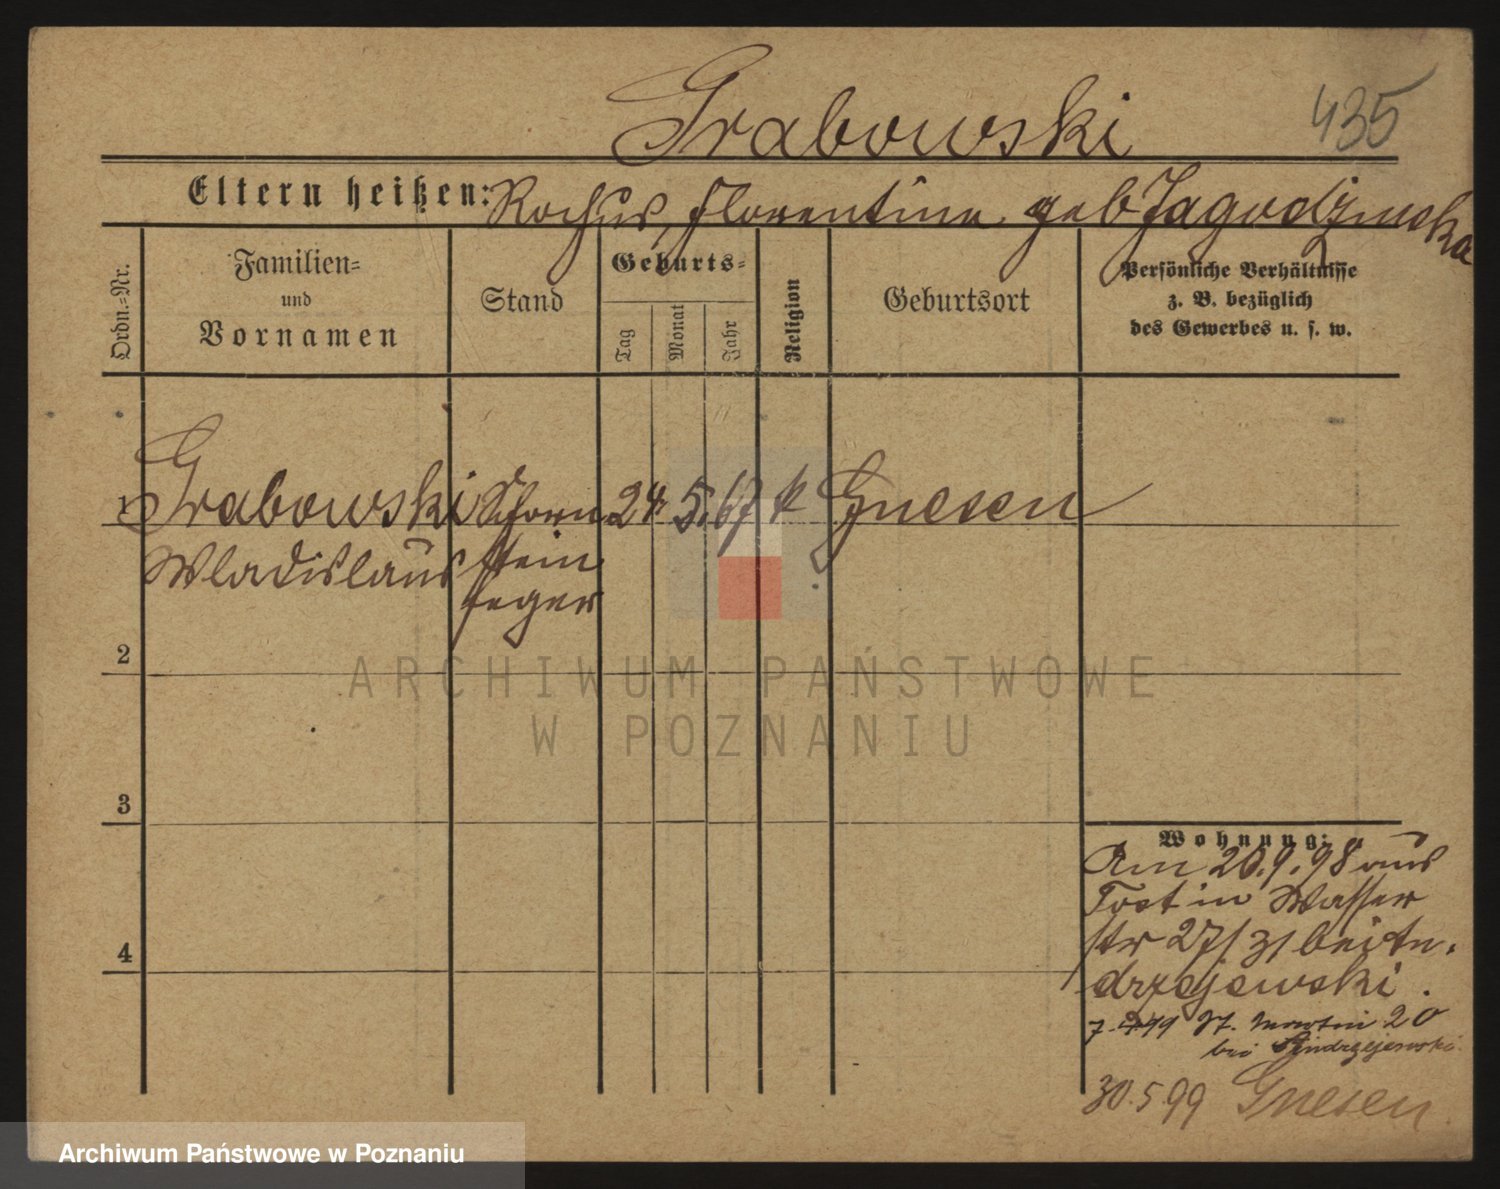 Grabowski
435
Eltern heißen: Rochus, Florentine geb Jagodzinska
Ordn.=Nr.
Familien=
und
Vornamen
Stand
Geburts=
Tag
Monat
Jahr
Religion
Geburtsort
Persönliche Verhältnisse
z. B. bezüglich
des Gewerbes u. s. w.
1 Grabowski Schorn 24. 5. 67 k Gnesen
Wladislaus stein
feger
2
ARCHIWUM PAŃSTWOWE
W POZNANIU
3
Wohnung:
Am 20.9.98 aus
Tost in Wasser
str 27/31 bei An-
drzejewski.
7.4.99 St. Martin 20
bei Andrzejewski
4
30.5.99 Gnesen
Archiwum Państwowe w Poznaniu